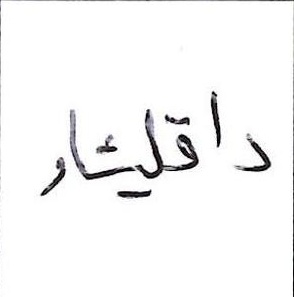 داقليثار